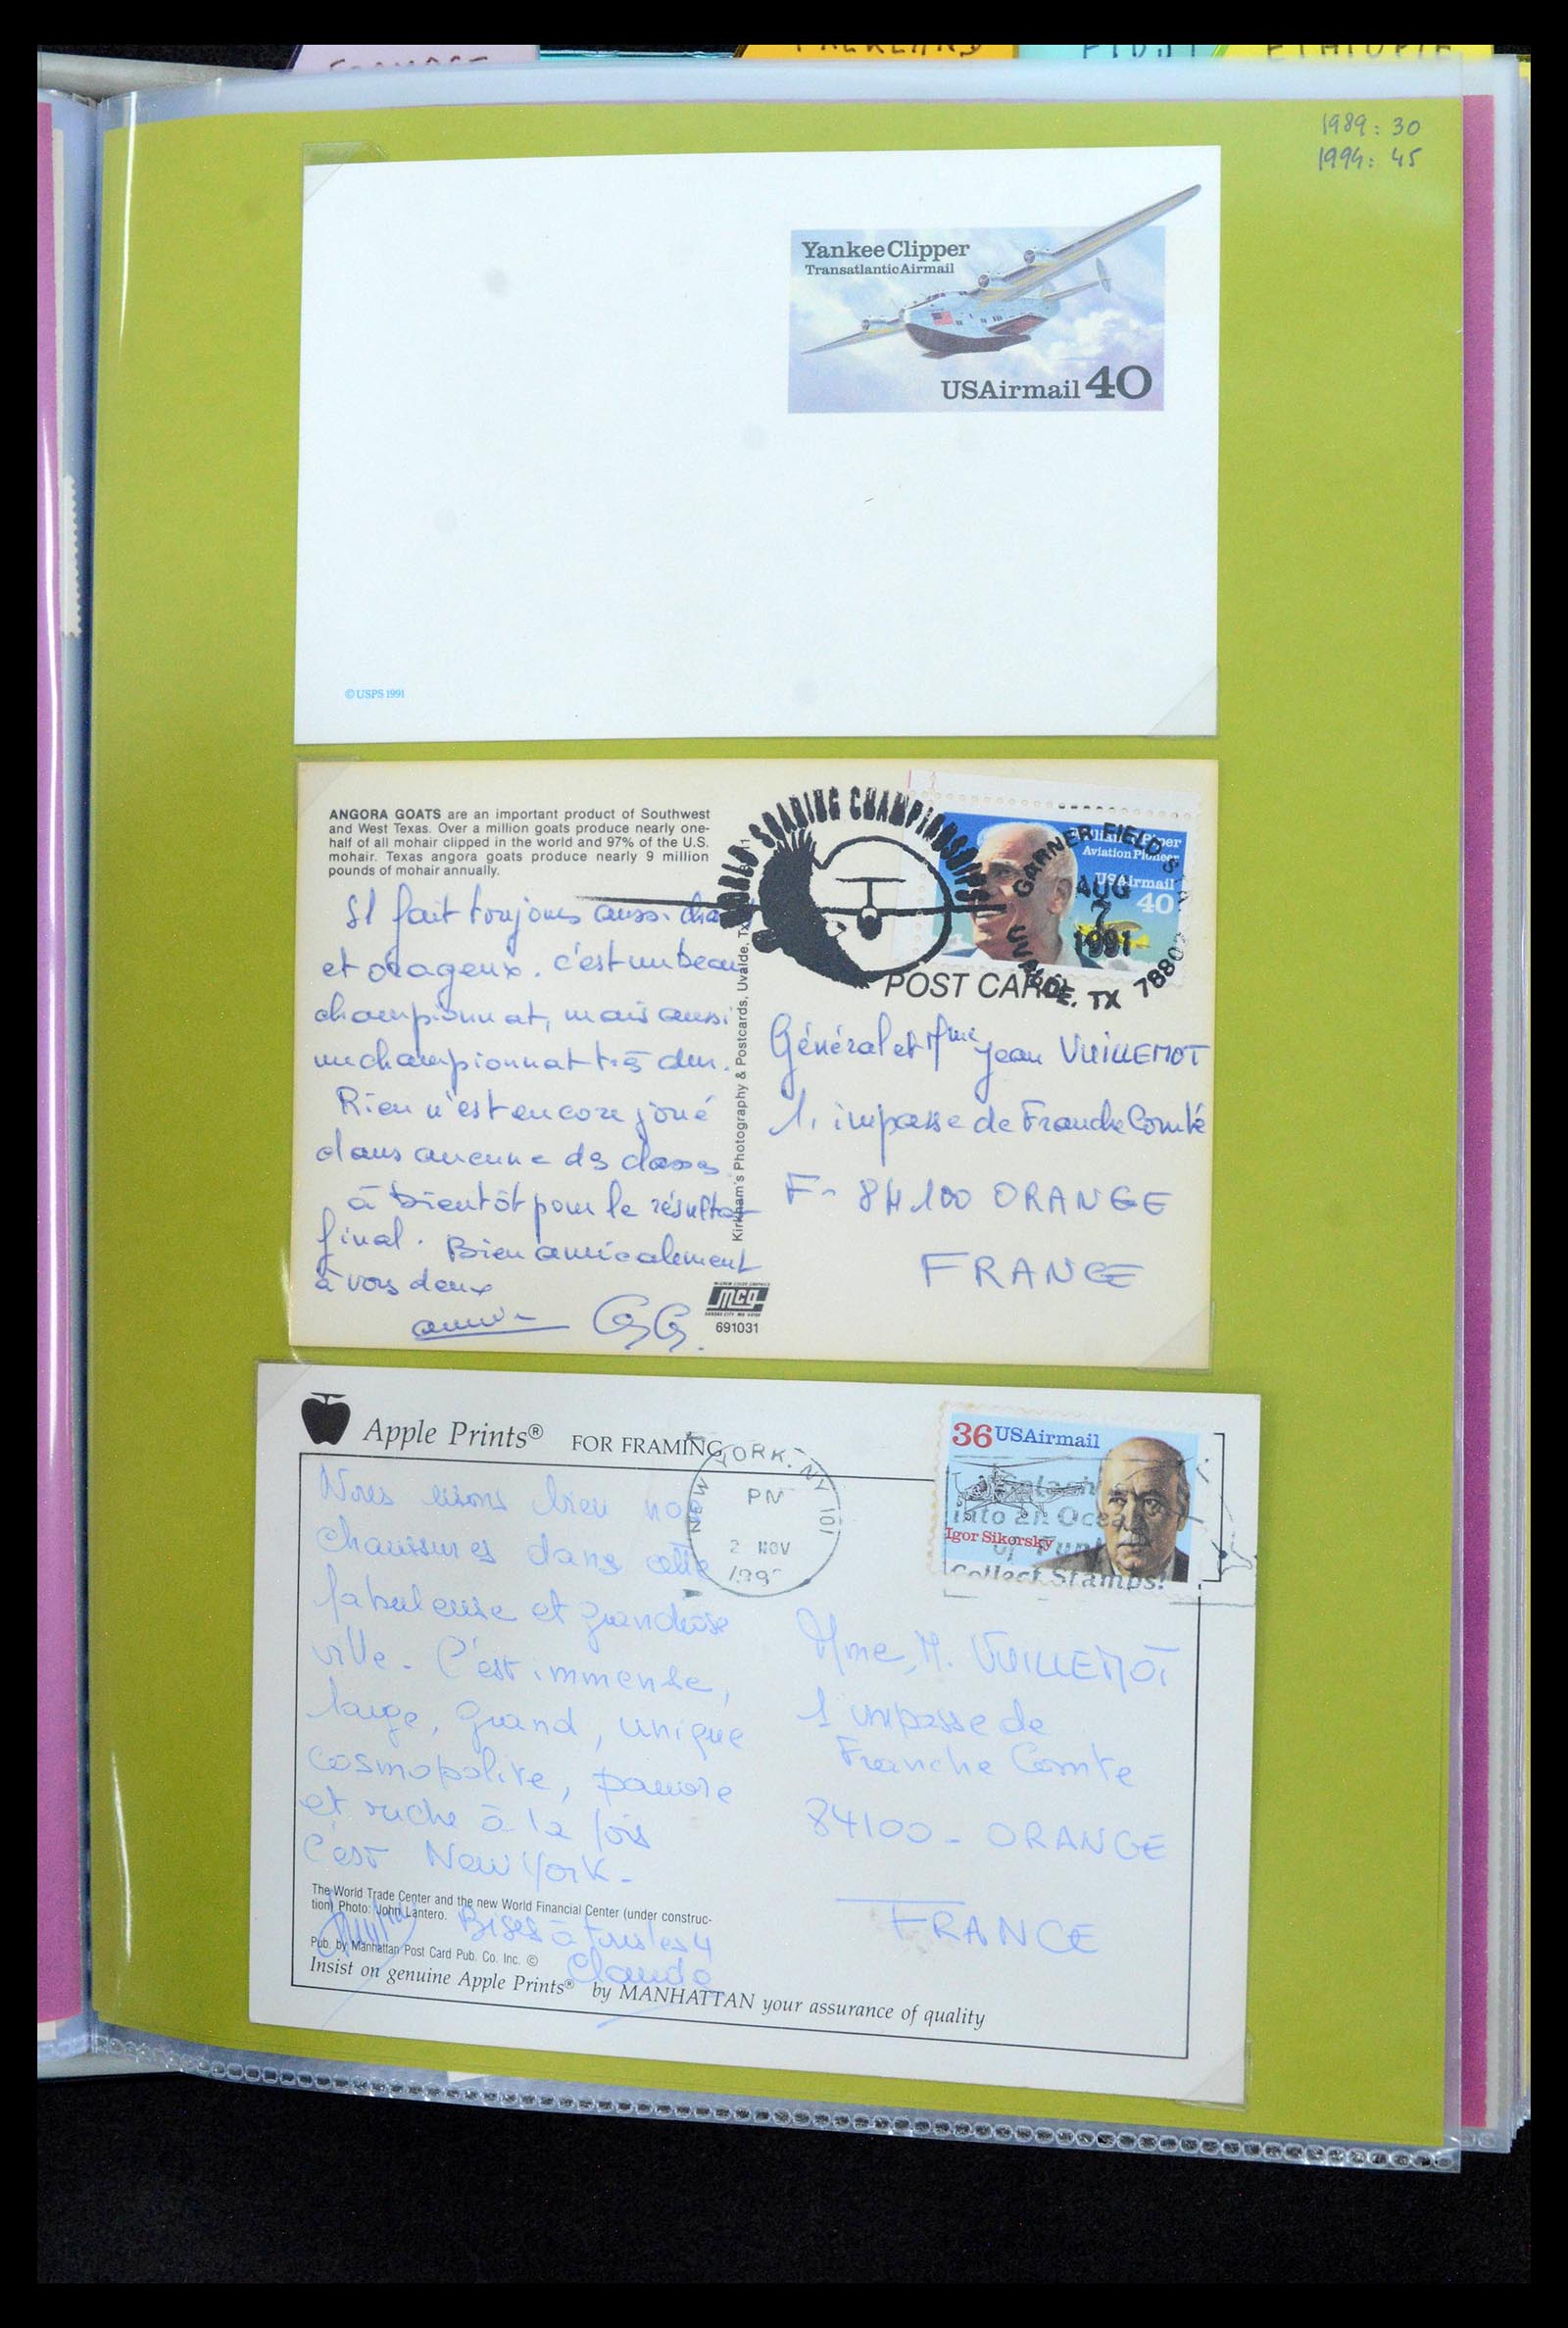 FALKLAND
FIDJI
ETHIOPIE
1989: 30
1994: 45
Yankee Clipper
Transatlantic Airmail
USAirmail 40
© USPS 1991
ANGORA GOATS are an important product of Southwest
and West Texas. Over a million goats produce nearly one-
half of all mohair clipped in the world and 97% of the U.S.
mohair. Texas angora goats produce nearly 9 million
pounds of mohair annually.
WORLD SOARING CHAMPIONSHIPS
Piper
Aviation Pioneer
USAirmail
40
GARNER FIELD
AUG
7
1991
UVALDE, TX
POST CARD
Il fait toujours aussi
et orageux. c'est un beau
championnat, mais aussi
un championnat très dur.
Rien n'est encore joué
dans aucune des classes
à bientôt pour le résultat
final. Bien amicalement
à vous deux
Kirkham's Photography & Postcards, Uvalde, Tx
mcg
691031
Général et Mme Jean VUILLEMOT
1, impasse de Franche Comté
F- 84100 ORANGE
FRANCE
Apple Prints® FOR FRAMING
NEW YORK, NY 101
PM
2 NOV
36 USAirmail
Igor Sikorsky
Splash
into an Ocean
of Fun!
Collect Stamps!
Nous usons bien nos
chaussures dans cette
fabuleuse et grandiose
ville. C'est immense,
large, grand, unique
cosmopolite, pauvre
et riche à la fois
C'est New York.
Mme, M. VUILLEMOT
1 impasse de
Franche Comte
84100 - ORANGE
FRANCE
The World Trade Center and the new World Financial Center (under construc-
tion) Photo: John Lantero.
Bises à tous les 4
Claude
Pub. by Manhattan Post Card Pub. Co. Inc. ©
Insist on genuine Apple Prints® by MANHATTAN your assurance of quality